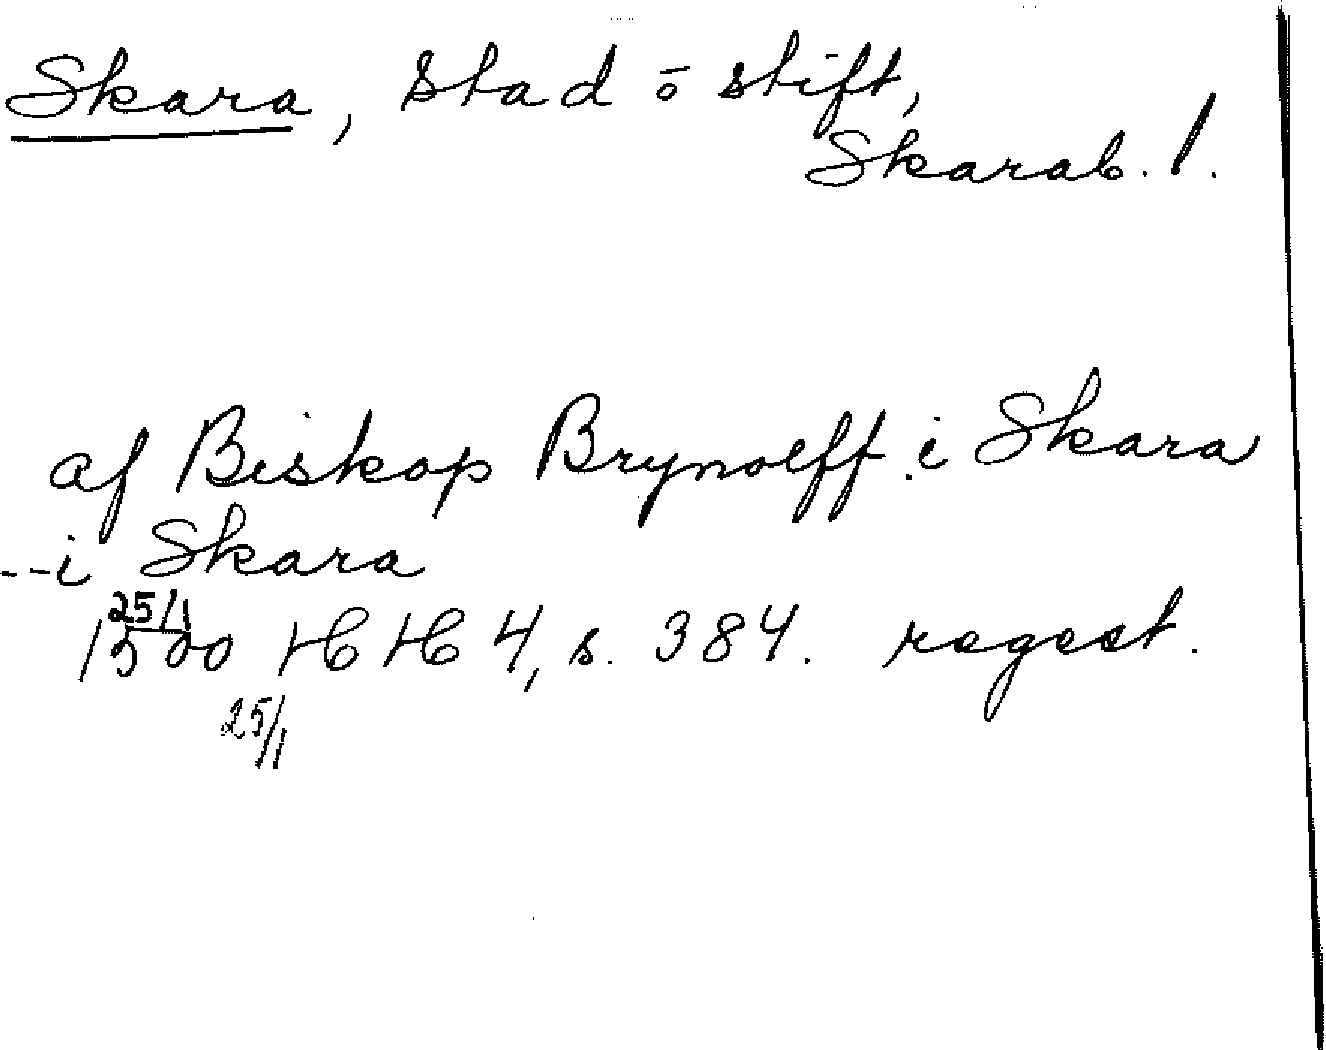 Skara, stad o stift,
Skarab. l.
af Biskop Brynolff i Skara
--i Skara
25/1
1500 HH 4, s. 384. regest.
25/1